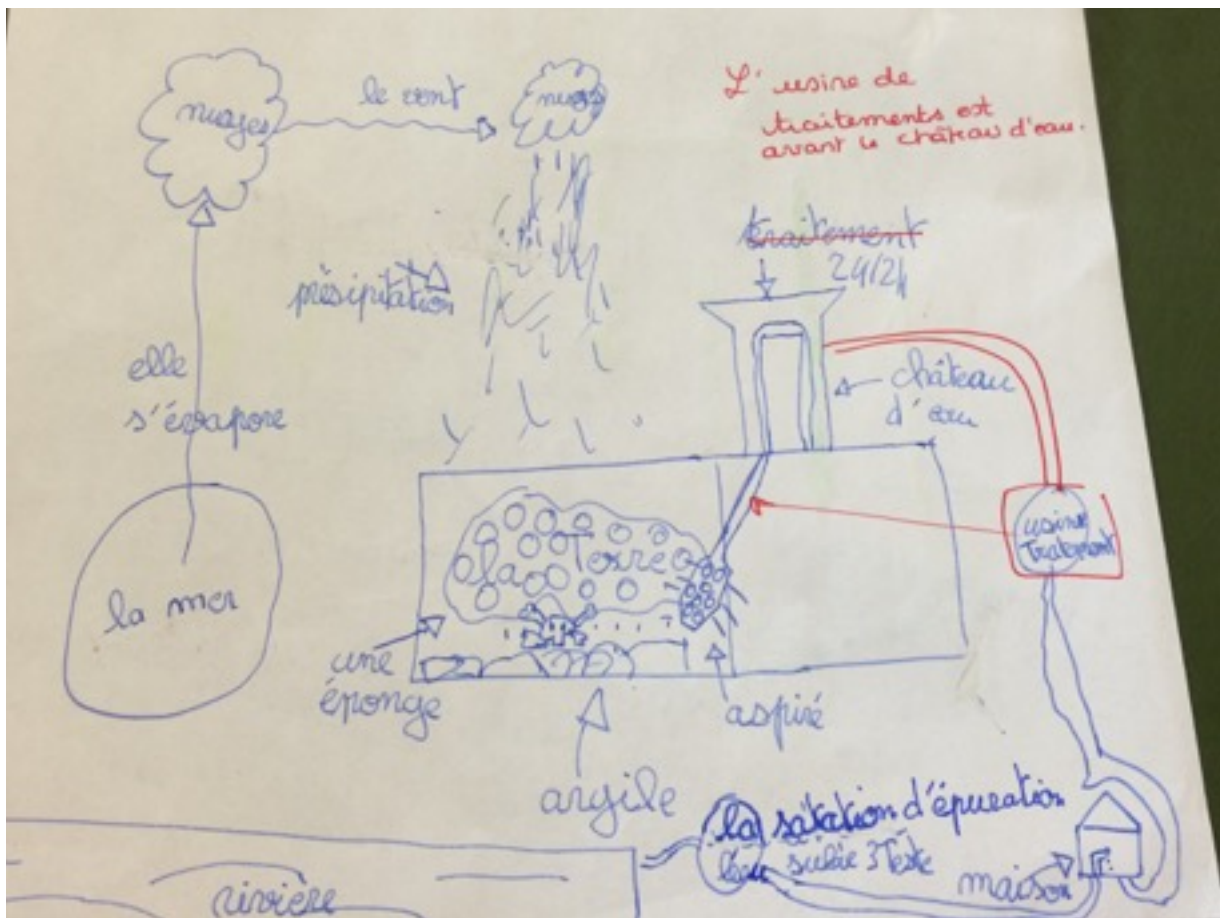 nuages
le vent
nuages
L'usine de
traitements est
avant le château d'eau.
traitement
24/24
présipitation
elle
s'évapore
château
d'eau
la mer
la Terre
usine
Tratement
une
éponge
aspiré
argile
la satation d'épuration
3 Teste
maison
rivière